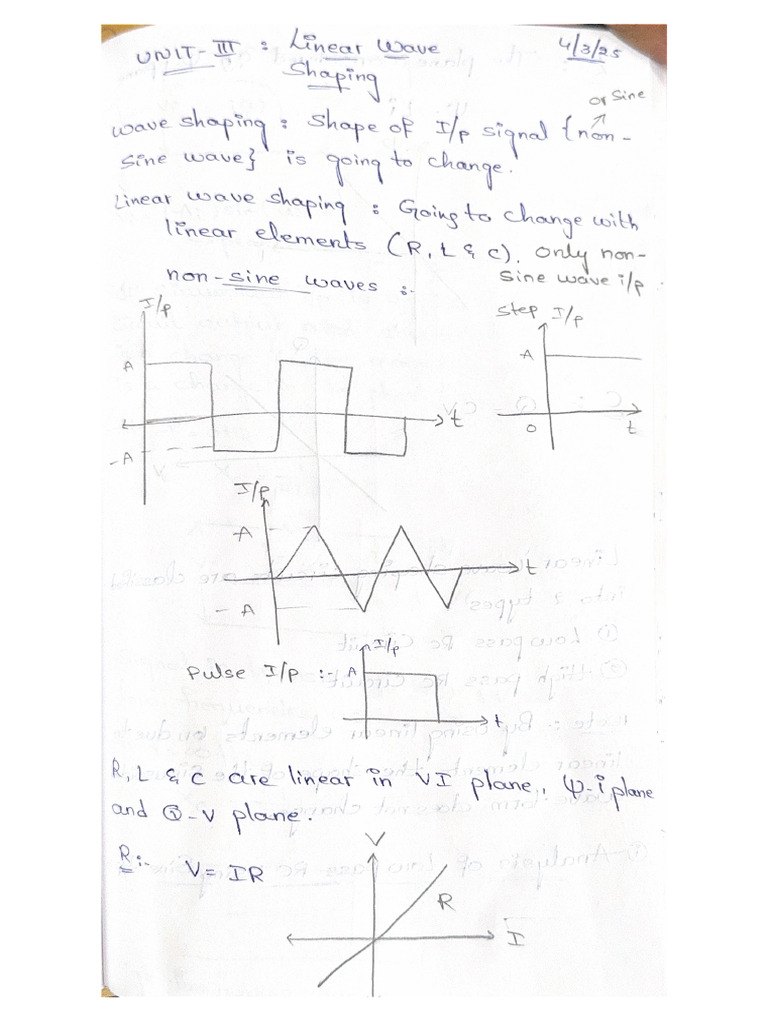 UNIT-III : Linear Wave
Shaping
4/3/25
or sine
Wave shaping : Shape of I/p signal {non-
sine wave} is going to change.
Linear wave shaping : Going to change with
linear elements (R, L & C). Only non-
sine wave i/p
non-sine waves :-
I/p
A
-A
t
Step I/p
A
0
t
I/p
A
-A
t
Pulse I/p :-
I/p
A
t
R, L & C are linear in VI plane, ψ-i plane
and Q-V plane.
R:-
V = IR
V
R
I